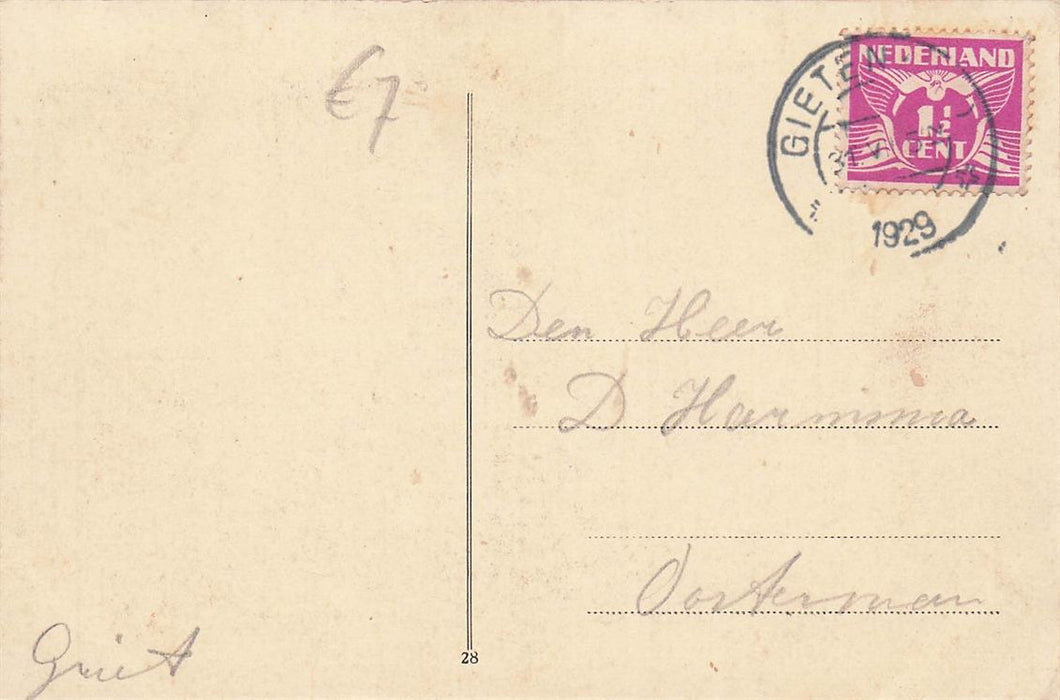 €7
NEDERLAND
1½
CENT
GIETEN
31.V
1929
Den Heer
D Harmina
Oosterman
Griet
28